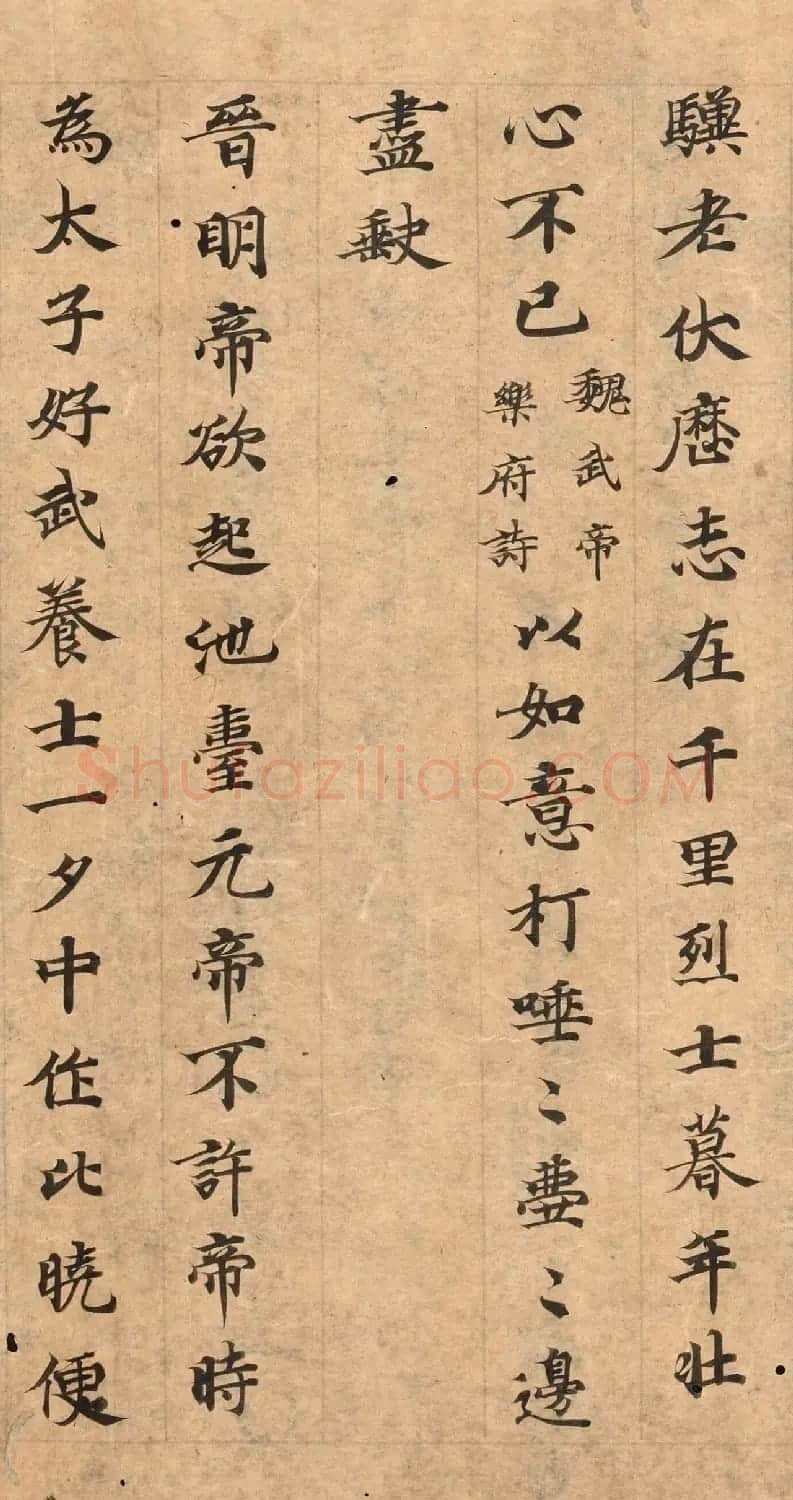 驥老伏歷志在千里烈士暮年壯
心不已魏武帝樂府詩以如意打唾〻壺〻邊
盡缺
晉明帝欲起池臺元帝不許帝時
為太子好武養士一夕中作比曉便
Shufaziliao.COM